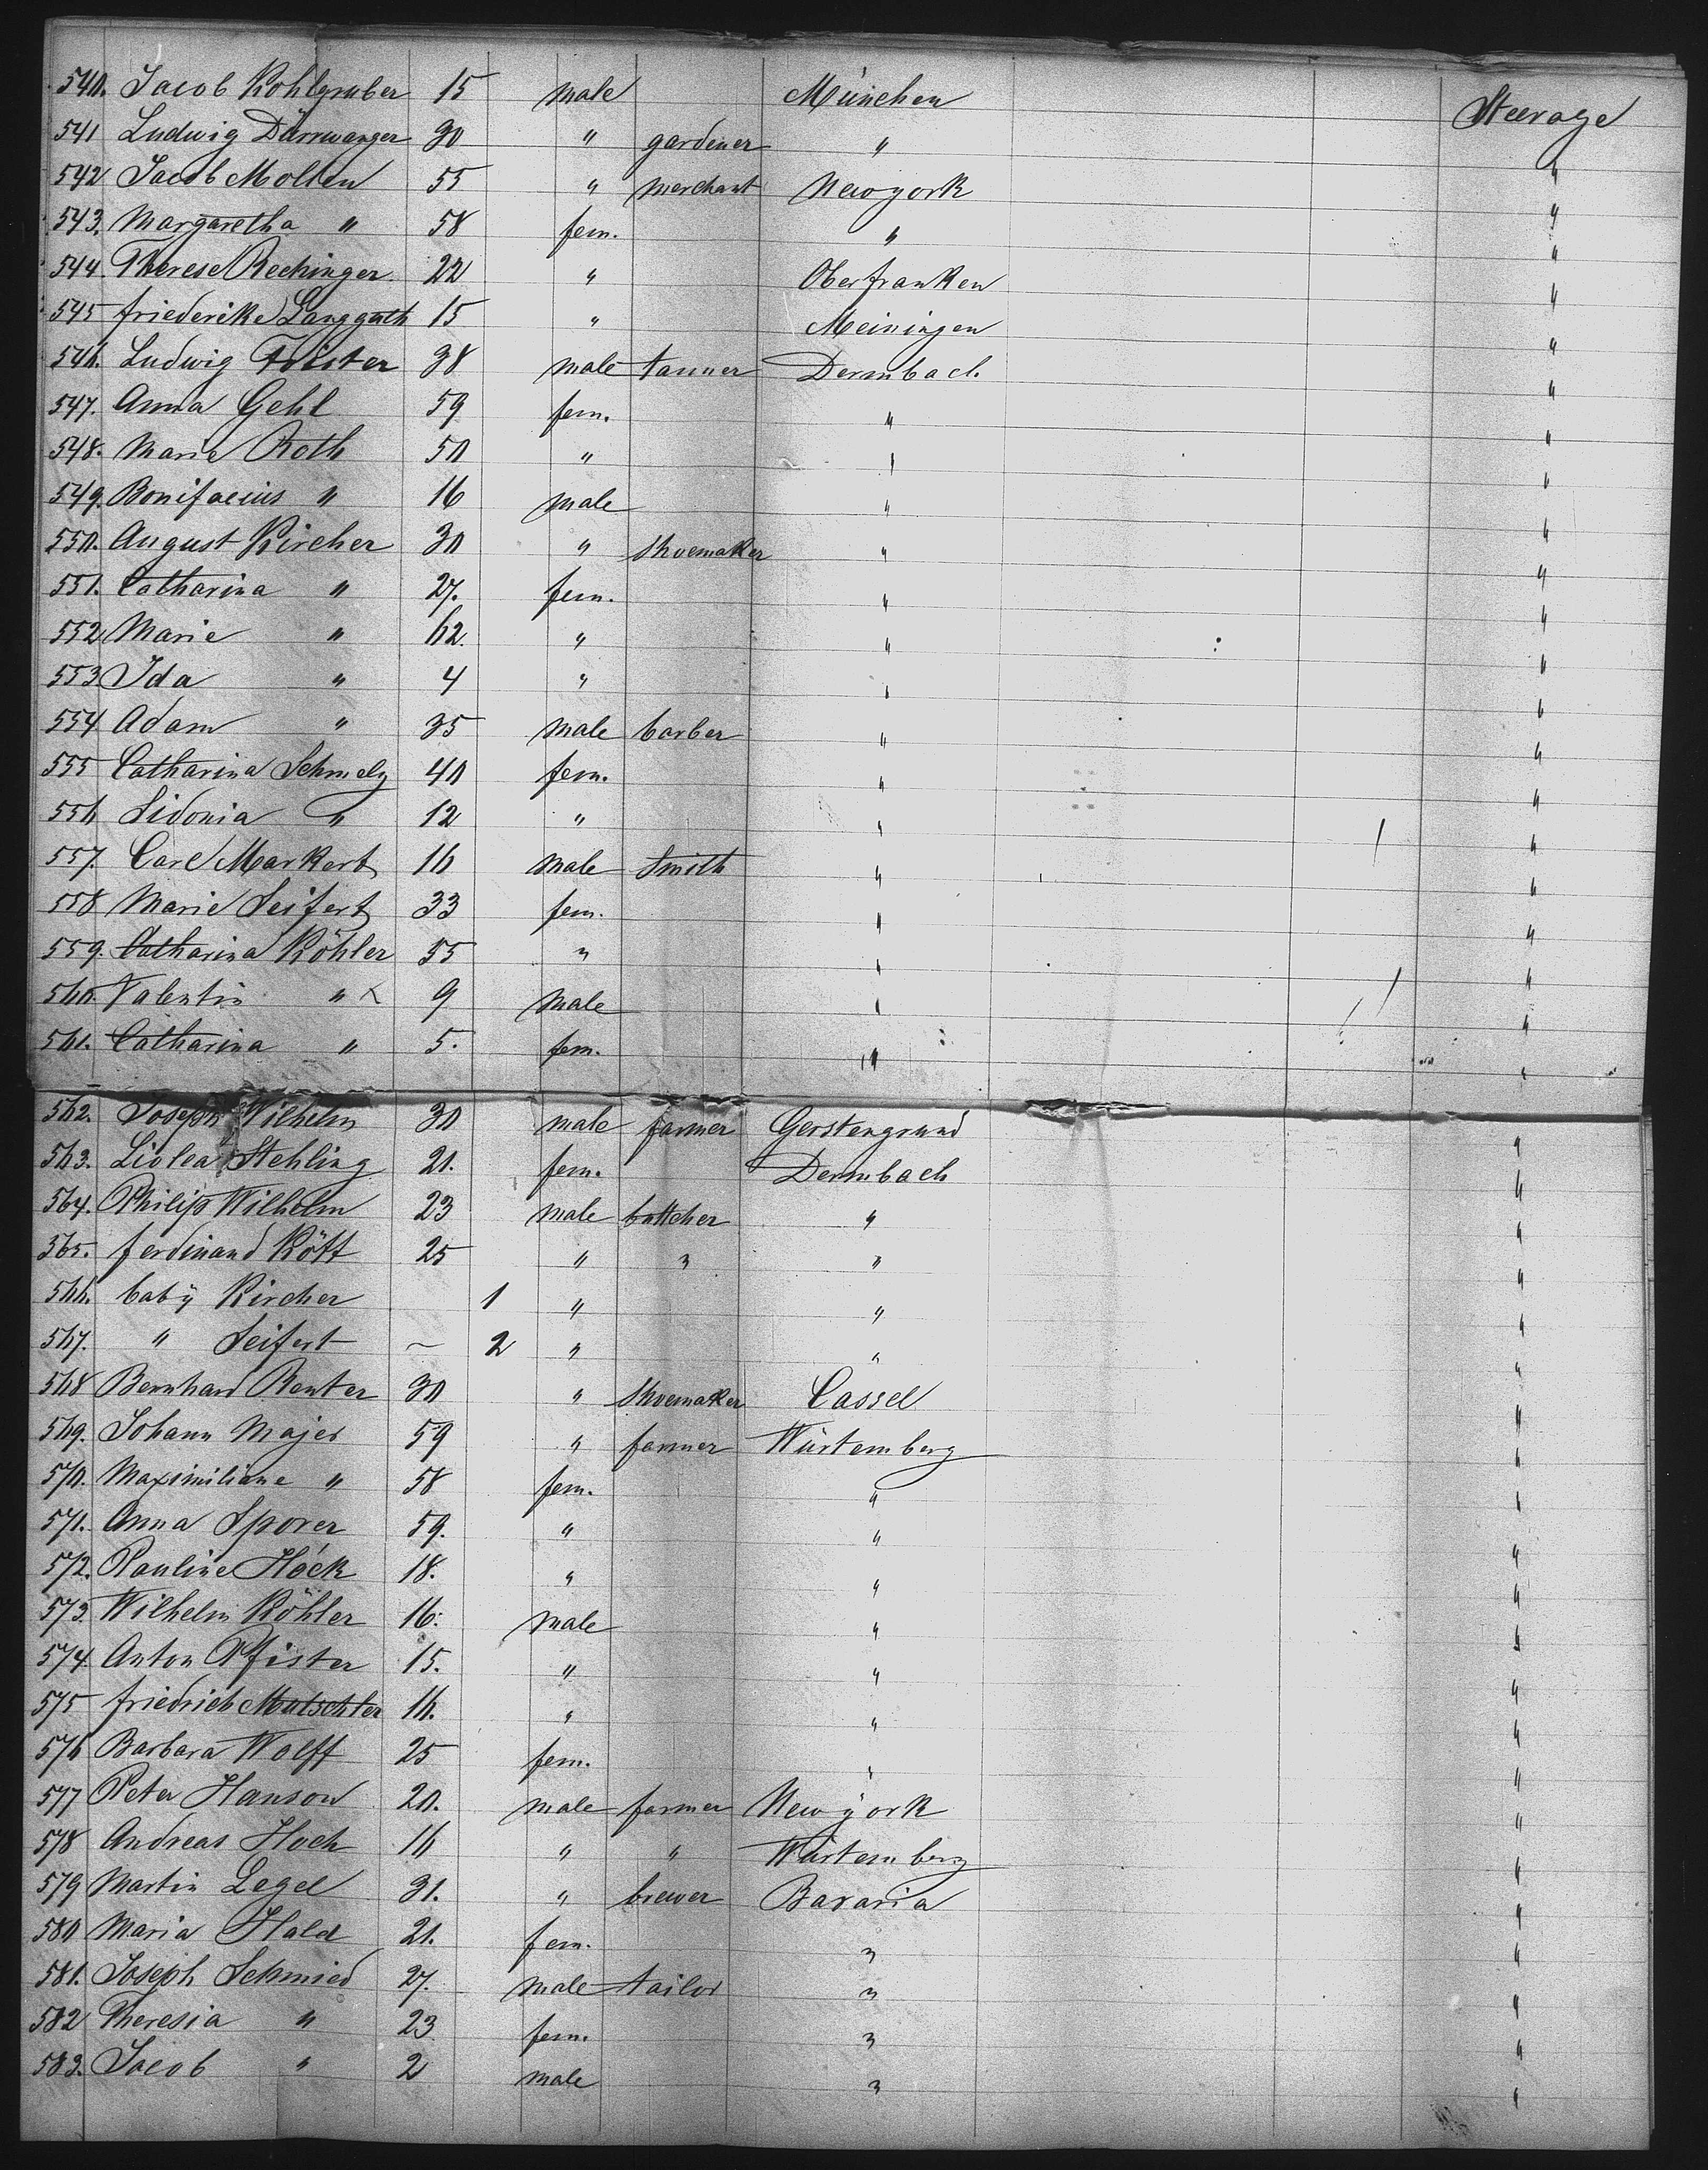 540. Jacob Kohlgruber 15 male München Steerage
541 Ludwig Dürrwanger 30 " gardener " "
542 Jacob Molten 55 " merchant Newyork "
543. Margaretha " 58 fem. " "
544. Therese Rechinger 22 " Oberfranken "
545 friederike Langguth 15 " Meiningen "
546. Ludwig Trister 38 male tanner Dermbach "
547. Anna Gehl 59 fem. " "
548. Marie Roth 50 " " "
549. Bonifacius " 16 male " "
550. August Kircher 30 " shoemaker " "
551. Catharina " 27. fem. " "
552 Marie " 62. " " "
553 Ida " 4 " " "
554 Adam " 35 male barber " "
555 Catharina Schmelz 40 fem. " "
556 Sidonia " 12 " " "
557. Carl Markert 16 male Smith " "
558 Marie Seifert 33 fem. " "
559. Catharina Köhler 55 " " "
560. Valentin " 9 male " "
561. Catharina " 5. fem. " "
562. Joseph Wilhelm 30 male farmer Gerstengrund "
563. Liolea Stehling 21. fem. Dermbach "
564. Philip Wilhelm 23 male bottcher " "
565. ferdinand Kött 25 " " " "
566. baby Kircher 1 " " "
567. " Seifert – 2 " " "
568 Bernhard Renter 30 " shoemaker Cassel "
569. Johann Majer 59 " farmer Würtemberg "
570. Maximiliane " 58 fem. " "
571. Anna Sporer 59. " " "
572. Pauline Höck 18. " " "
573. Wilhelm Köhler 16. male " "
574. Anton Pfister 15. " " "
575 friedrich Mutschler 16. " " "
576 Barbara Wolff 25 fem. " "
577 Peter Hanson 20. male farmer Newyork "
578 Andreas Hoch 16 " " Würtemberg "
579 Martin Legel 31. " brewer Bavaria "
580 Maria Hald 21. fem. " "
581. Joseph Schmied 27. male tailor " "
582 Theresia " 23 fem. " "
583. Jacob " 2 male " "